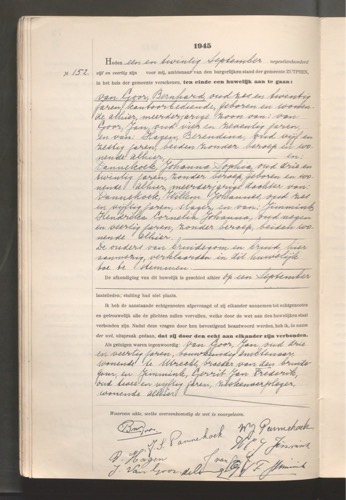 1945
Nº 152.
Heden een en twintig September negentienhonderd
vijf en veertig zijn voor mij, ambtenaar van den burgerlijken stand der gemeente ZUTPHEN,
in het huis der gemeente verschenen, ten einde een huwelijk aan te gaan:
van Goor, Bernhard, oud zes en twintig
jaren, kantoorbediende, geboren en wonen-
de alhier, meerderjarige zoon van: van
Goor, Jan, oud vier en zeventig jaren,
en van Hagen, Berendina, oud vijf en
zestig jaren, beiden zonder beroep en wo-
nende alhier, en
Pannekoek, Johanna Sophia, oud drie en
twintig jaren, zonder beroep, geboren en wo-
nende alhier, meerderjarige dochter van
Pannekoek, Willem Johannes, oud zes
en vijftig jaren, slager, en van Jimmink,
Hendrika Cornelia Johanna, oud negen
en veertig jaren, zonder beroep, beiden wo-
nende alhier.
De ouders van bruidegom en bruid, hier
aanwezig, verklaarden in dit huwelijk
toe te stemmen.
De afkondiging van dit huwelijk is geschied alhier op een September
laatstleden; stuiting had niet plaats.
Ik heb de aanstaande echtgenooten afgevraagd of zij elkander aannemen tot echtgenooten
en getrouwelijk alle de plichten zullen vervullen, welke door de wet aan den huwelijken staat
verbonden zijn. Nadat deze vragen door hen bevestigend beantwoord werden, heb ik, in naam
der wet, uitspraak gedaan, dat zij door den echt aan elkander zijn verbonden.
Als getuigen waren tegenwoordig van Goor, Jan, oud drie
en veertig jaren, bouwkundig ambtenaar,
wonende te Utrecht, broeder van den bruide-
gom, en Jimmink, Gerrit Jan Frederik,
oud twee en vijftig jaren,
wonende alhier.
Waarvan akte, welke overeenkomstig de wet is voorgelezen.
BvGoor
J.S. Pannekoek
W J Pannekoek
B. Hagen
J. Van Goor